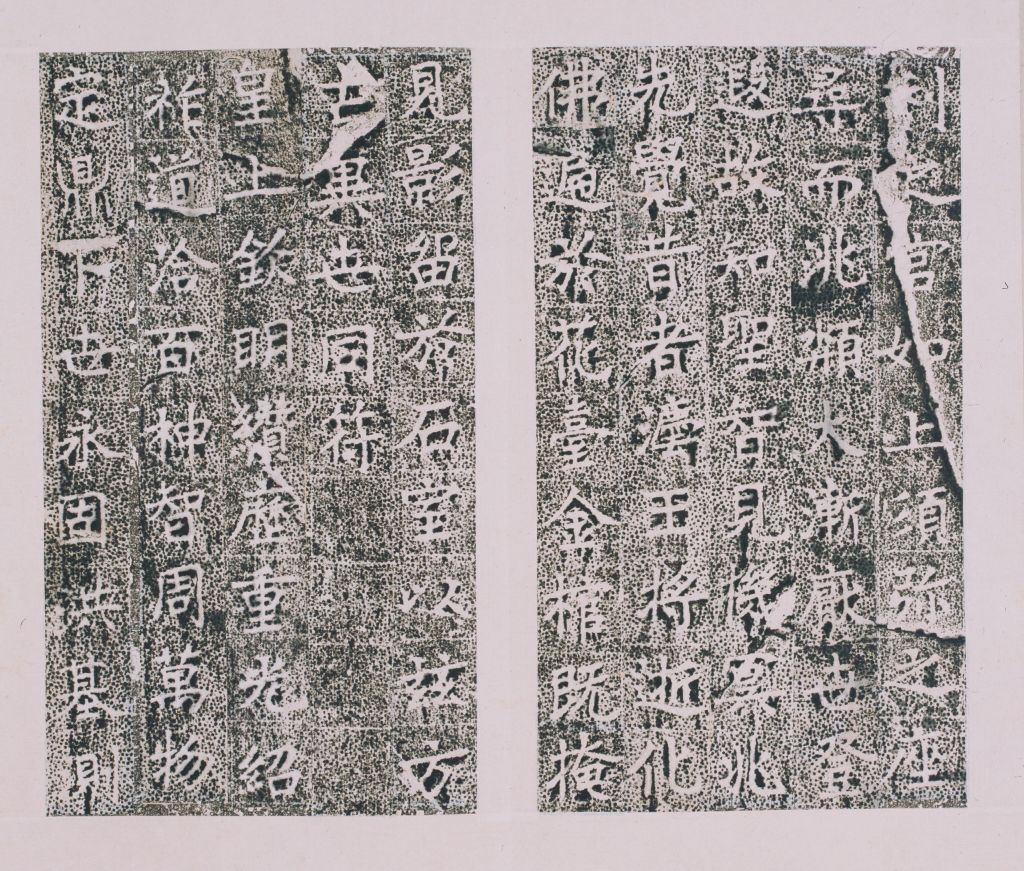 利之宮如上須弥之座
尋而兆頻大漸厭世登
遐故知聖智見機冥兆
先覺昔者灋王將逝化
佛遍於花臺金棺既掩
見影留於石室以茲方
古異世同符
皇上欽明纘歷重光紹
祚道洽百神智周萬物
定鼎下世永固洪基則